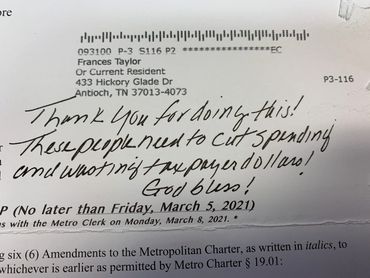 ore
093100 P-3 S116 P2 ******************EC
Frances Taylor
Or Current Resident
433 Hickory Glade Dr
Antioch, TN 37013-4073
P3-116
Thank you for doing this!
These people need to cut spending
and wasting taxpayer dollars!
God bless!
P (No later than Friday, March 5, 2021)
ns with the Metro Clerk on Monday, March 8, 2021. *
g six (6) Amendments to the Metropolitan Charter, as written in italics, to
whichever is earlier as permitted by Metro Charter § 19.01: